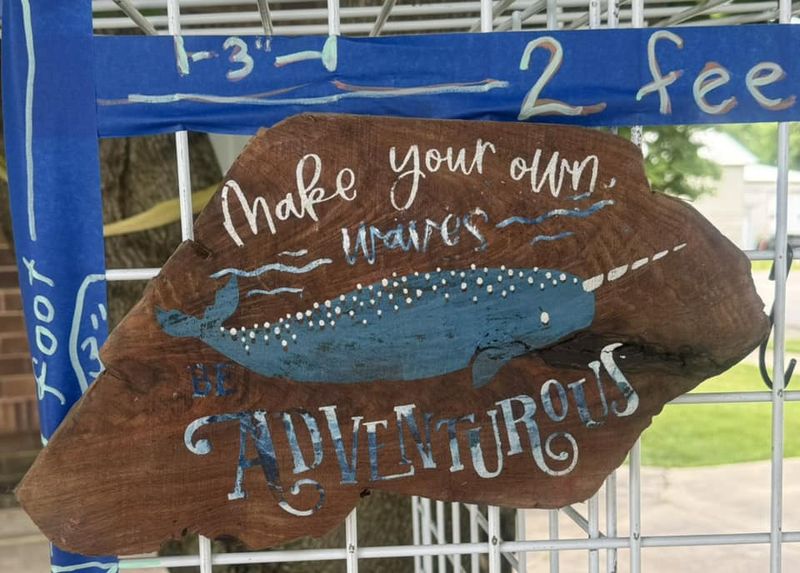 3"
2 fee
Make your own
waves
BE
ADVENTUROUS
FOOT
3"